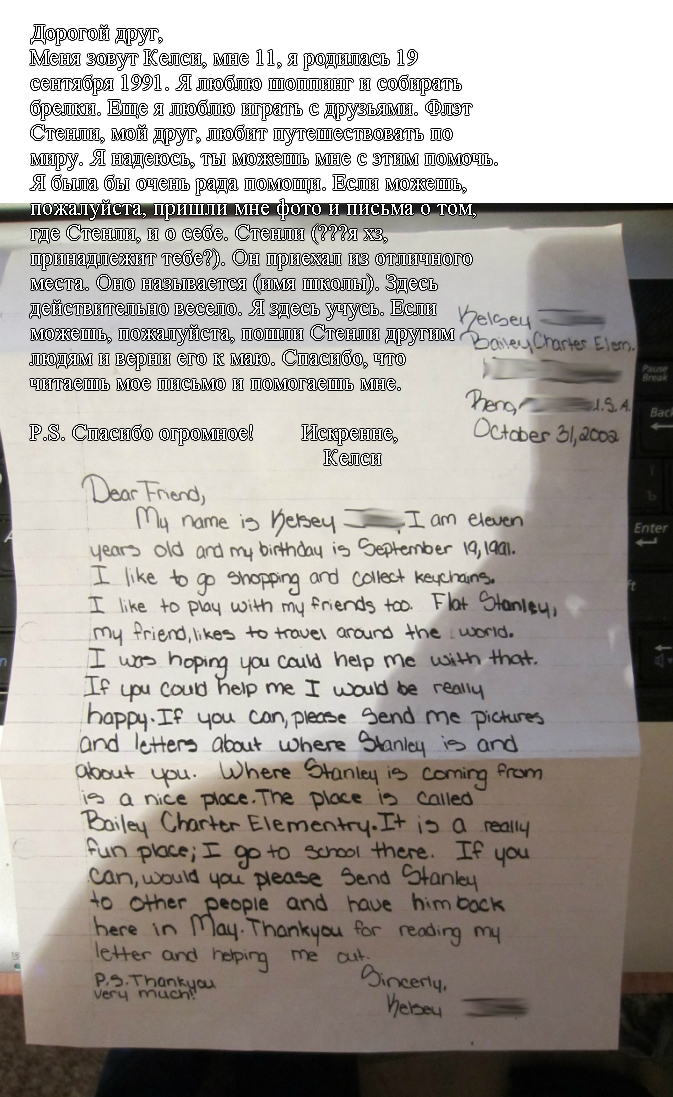 Дорогой друг,
Меня зовут Келси, мне 11, я родилась 19
сентября 1991. Я люблю шоппинг и собирать
брелки. Еще я люблю играть с друзьями. Флэт
Стенли, мой друг, любит путешествовать по
миру. Я надеюсь, ты можешь мне с этим помочь.
Я была бы очень рада помощи. Если можешь,
пожалуйста, пришли мне фото и письма о том,
где Стенли, и о себе. Стенли (???я хз,
принадлежит тебе?). Он приехал из отличного
места. Оно называется (имя школы). Здесь
действительно весело. Я здесь учусь. Если
можешь, пожалуйста, пошли Стенли другим
людям и верни его к маю. Спасибо, что
читаешь мое письмо и помогаешь мне.
P.S. Спасибо огромное! Искренне,
Келси
Kelsey
Bailey Charter Elem.
Reno, U.S.A.
October 31, 2002
Dear Friend,
My name is Kelsey . I am eleven
years old and my birthday is September 19, 1991.
I like to go shopping and collect keychains.
I like to play with my friends too. Flat Stanley,
my friend, likes to travel around the world.
I was hoping you could help me with that.
If you could help me I would be really
happy. If you can, please send me pictures
and letters about where Stanley is and
about you. Where Stanley is coming from
is a nice place. The place is called
Bailey Charter Elementry. It is a really
fun place; I go to school there. If you
can, would you please send Stanley
to other people and have him back
here in May. Thankyou for reading my
letter and helping me out.
P.S. Thankyou
very much!
Sincerly,
Kelsey
Pause
Break
Back
Ъ
Enter